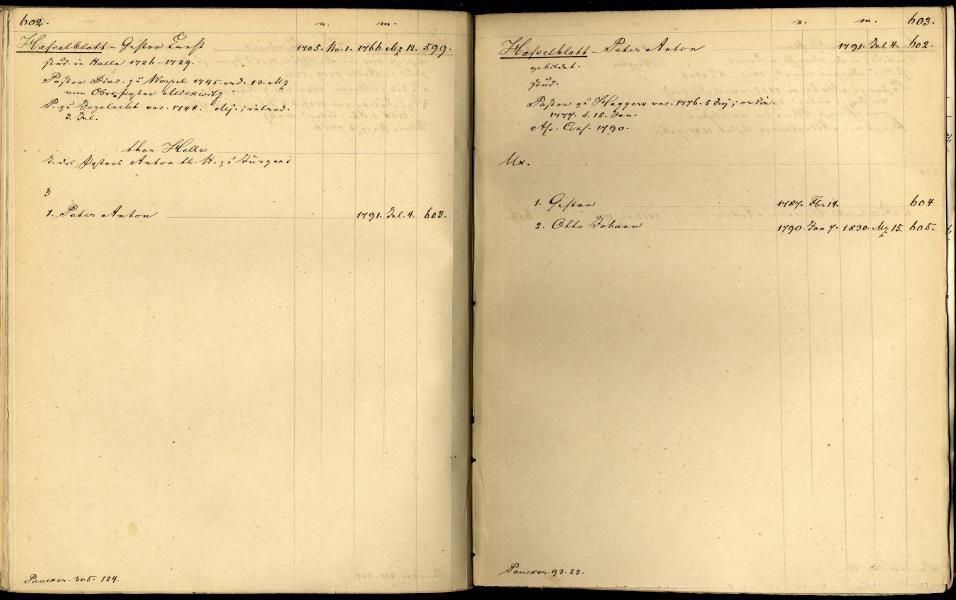 602. n. m.
Hasselblatt – Gustav Ernst 1705. No. 1. 1766 Mz 12. 599.
stud. in Halle 1726–1729.
Pastor Diac. zu 1745. ord. 13. Mz
vom Oberpastor
P. zu Jegelecht voc. 1748. introd.
2. Jul.
Helle
T. des Pastors Anton th. H. zu Jürgens
3
1. Peter Anton 1791. Jul. 4. 603.
Paucker. 305. 124.
n. m. 603.
Hasselblatt – Peter Anton 1791. Jul. 4. 602.
gebildet.
stud.
Pastor zu Haggers voc. 1776. 5 ordin.
1777. d. 15. Jan.
Ass. Cons. 1790.
Ux.
1. Gustav 1787. Fbr 14. 604
2. Otto Johann 1790 Jan 7. 1830. Mz 15. 605.
Paucker. 93. 23.